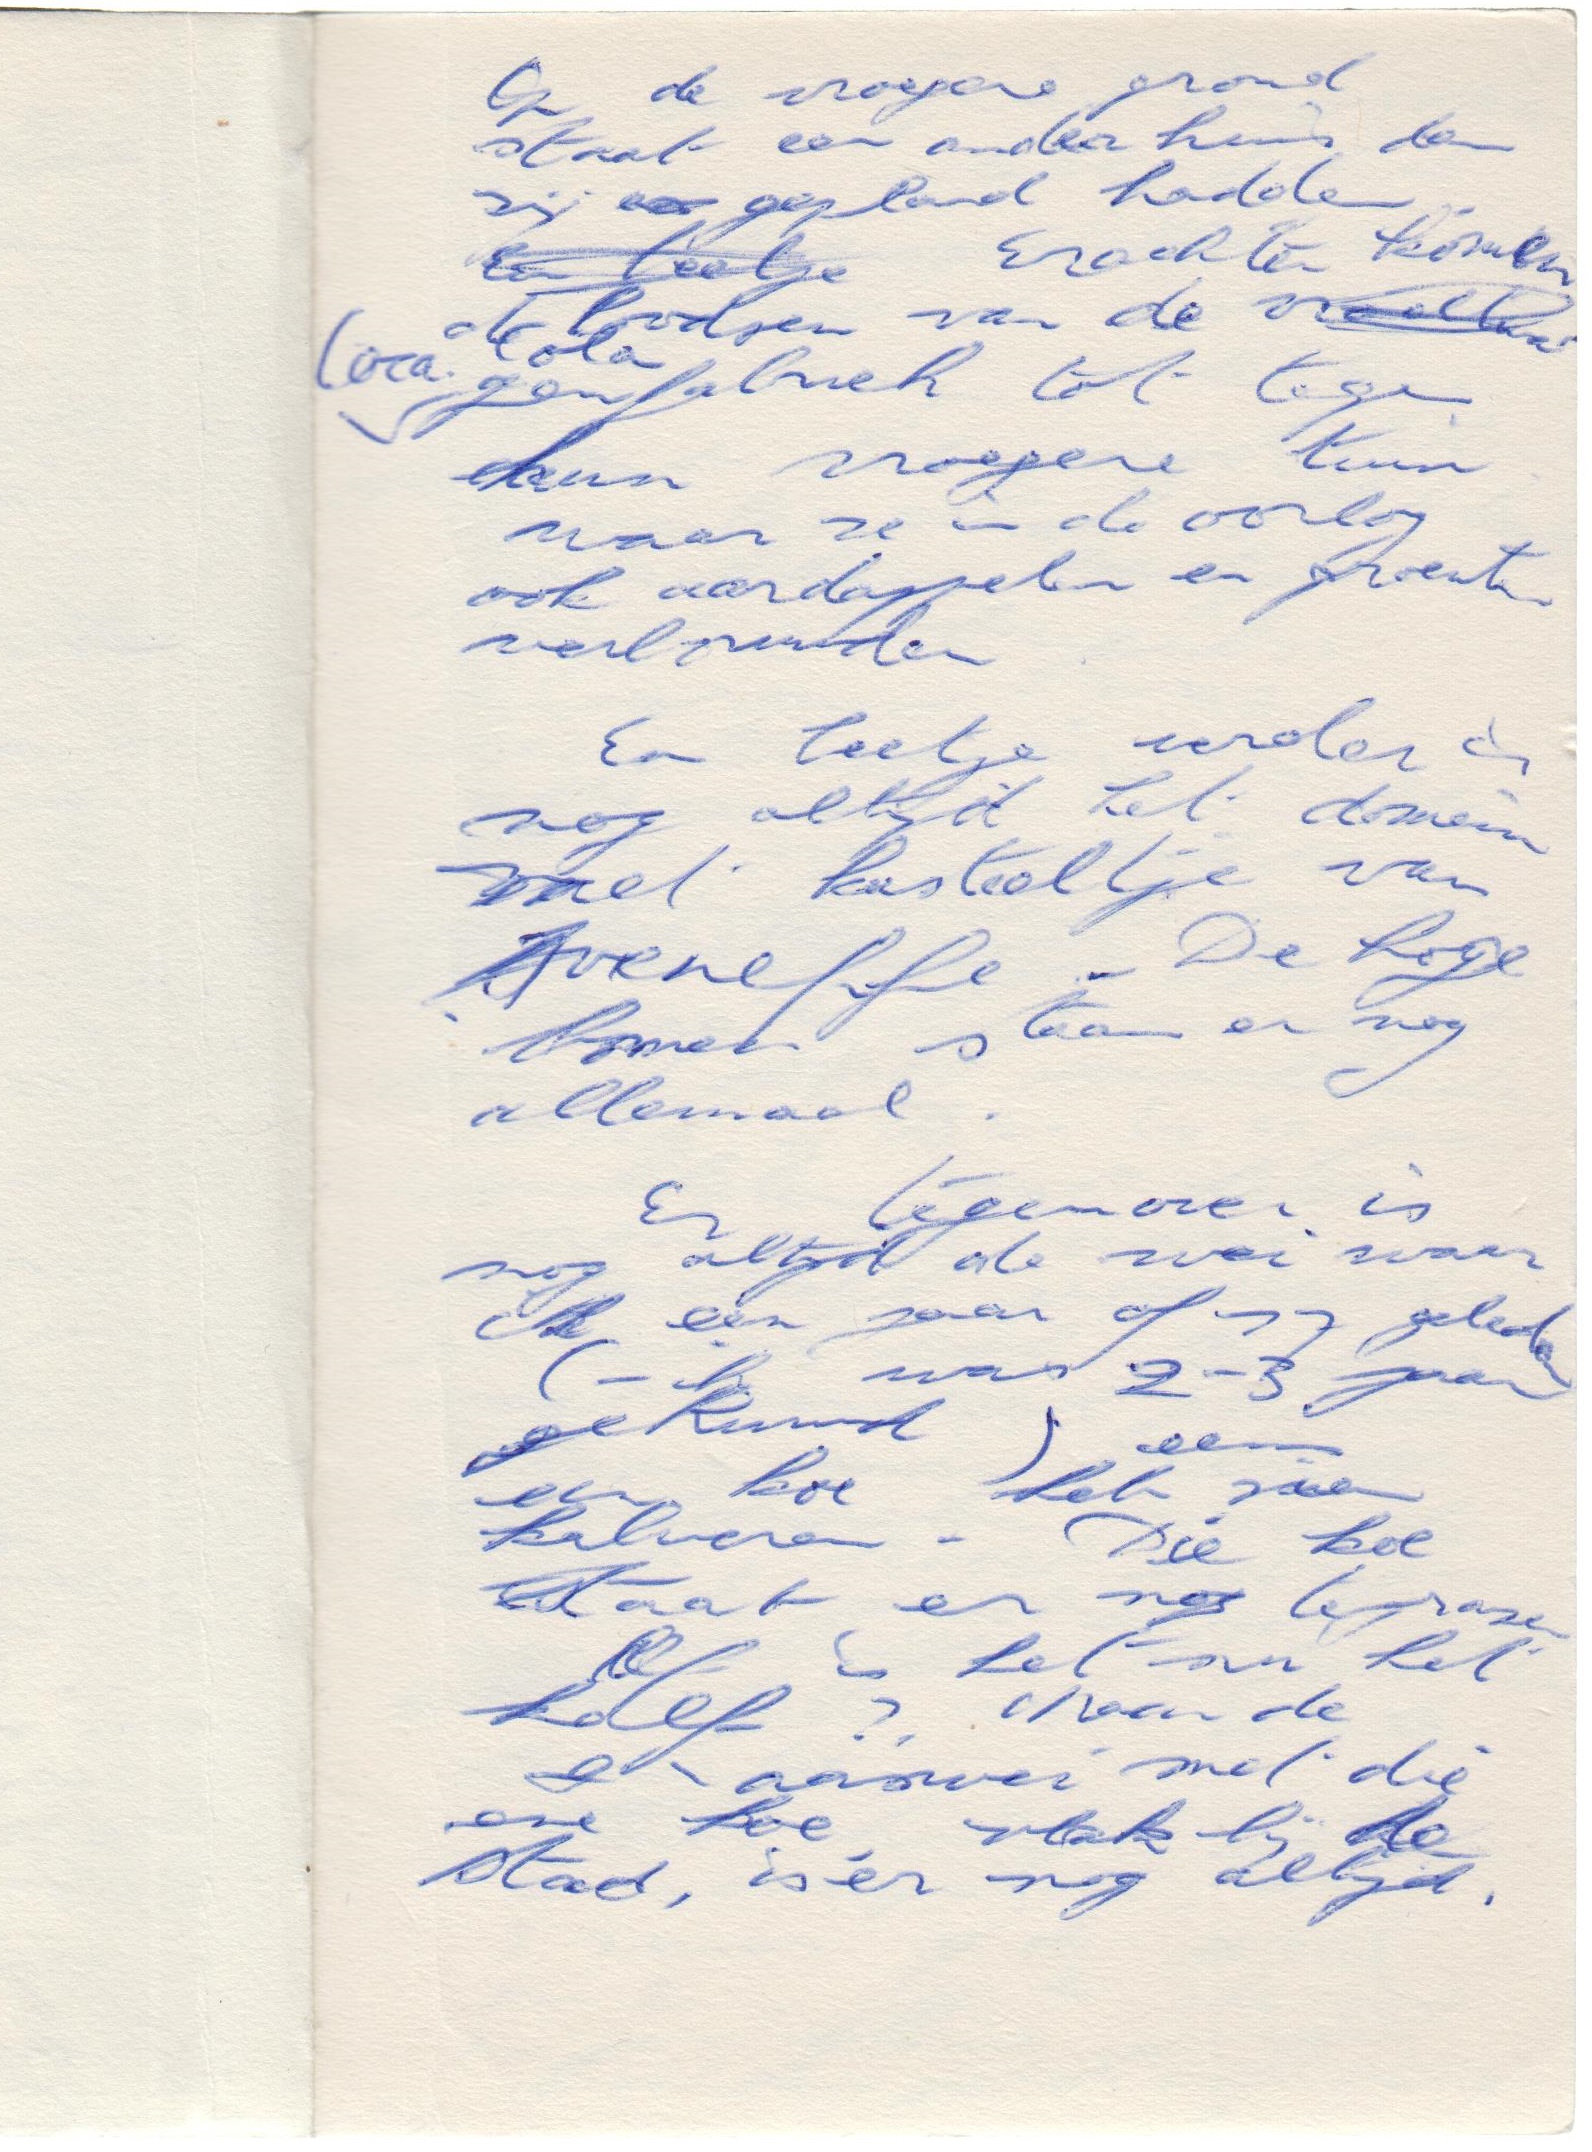 Op de vroegere grond
staat een ander huis dan
zij gepland hadden.
Een beetje Erachter komen
de loodsen van de
Coca. Cola
fabriek tot tegen
hun vroegere tuin
waar ze in de oorlog
ook aardappelen en groenten
verbouwden
Een beetje verder is
nog altijd het domein
met kasteeltje van
De hoge
bomen staan er nog
allemaal.
Er tegenover is
nog altijd de wei waar
ik een jaar of geleden
(- ik was 2-3 jaar
getrouwd) een
een koe heb zien
kalveren - Die koe
staat er nog te grazen
Of is het nu het
kalf? Maar de
met die
ene koe, vlak bij de
stad, is er nog altijd.